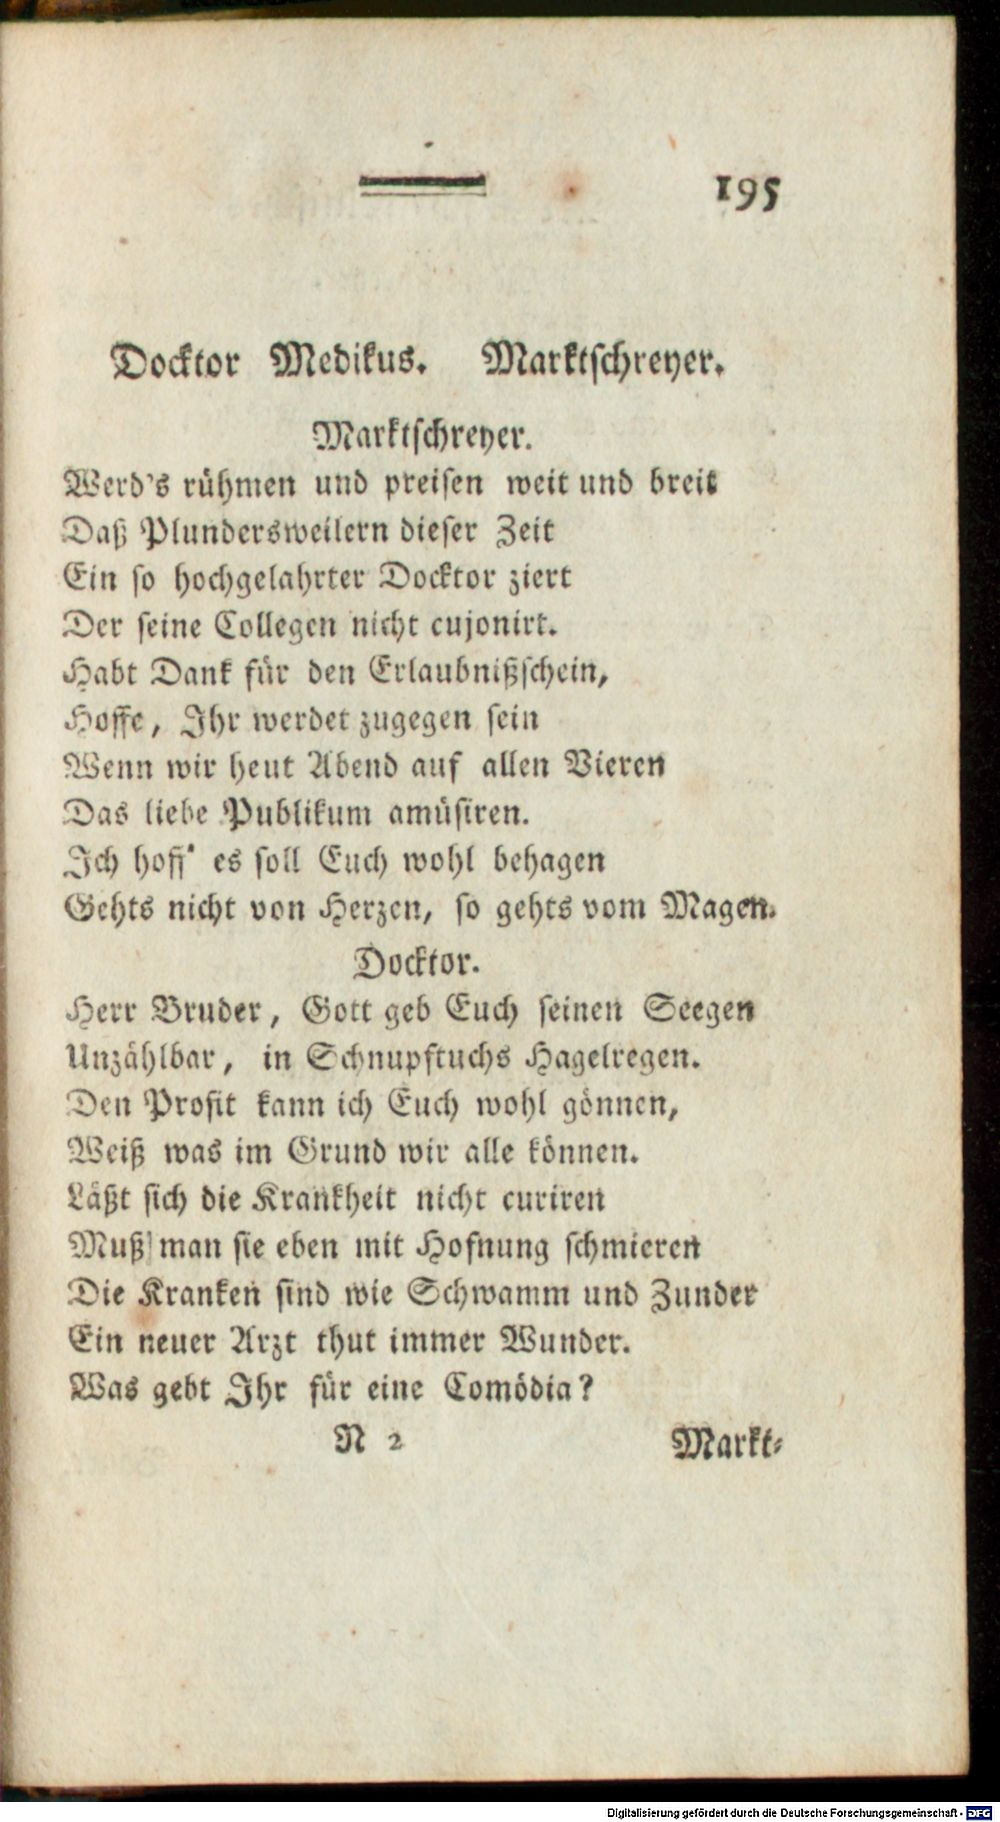 195
Docktor Medikus. Marktschreyer.
Marktschreyer.
Werd's rühmen und preisen weit und breit
Daß Plundersweilern dieser Zeit
Ein so hochgelahrter Docktor ziert
Der seine Collegen nicht cujonirt.
Habt Dank für den Erlaubnißschein,
Hoffe, Ihr werdet zugegen sein
Wenn wir heut Abend auf allen Vieren
Das liebe Publikum amüsiren.
Ich hoff' es soll Euch wohl behagen
Gehts nicht von Herzen, so gehts vom Magen.
Docktor.
Herr Bruder, Gott geb Euch seinen Seegen
Unzählbar, in Schnupftuchs Hagelregen.
Den Profit kann ich Euch wohl gönnen,
Weiß was im Grund wir alle können.
Läßt sich die Krankheit nicht curiren
Muß man sie eben mit Hofnung schmieren
Die Kranken sind wie Schwamm und Zunder
Ein neuer Arzt thut immer Wunder.
Was gebt Ihr für eine Comödia?
N 2 Markt-
Digitalisierung gefördert durch die Deutsche Forschungsgemeinschaft - DFG